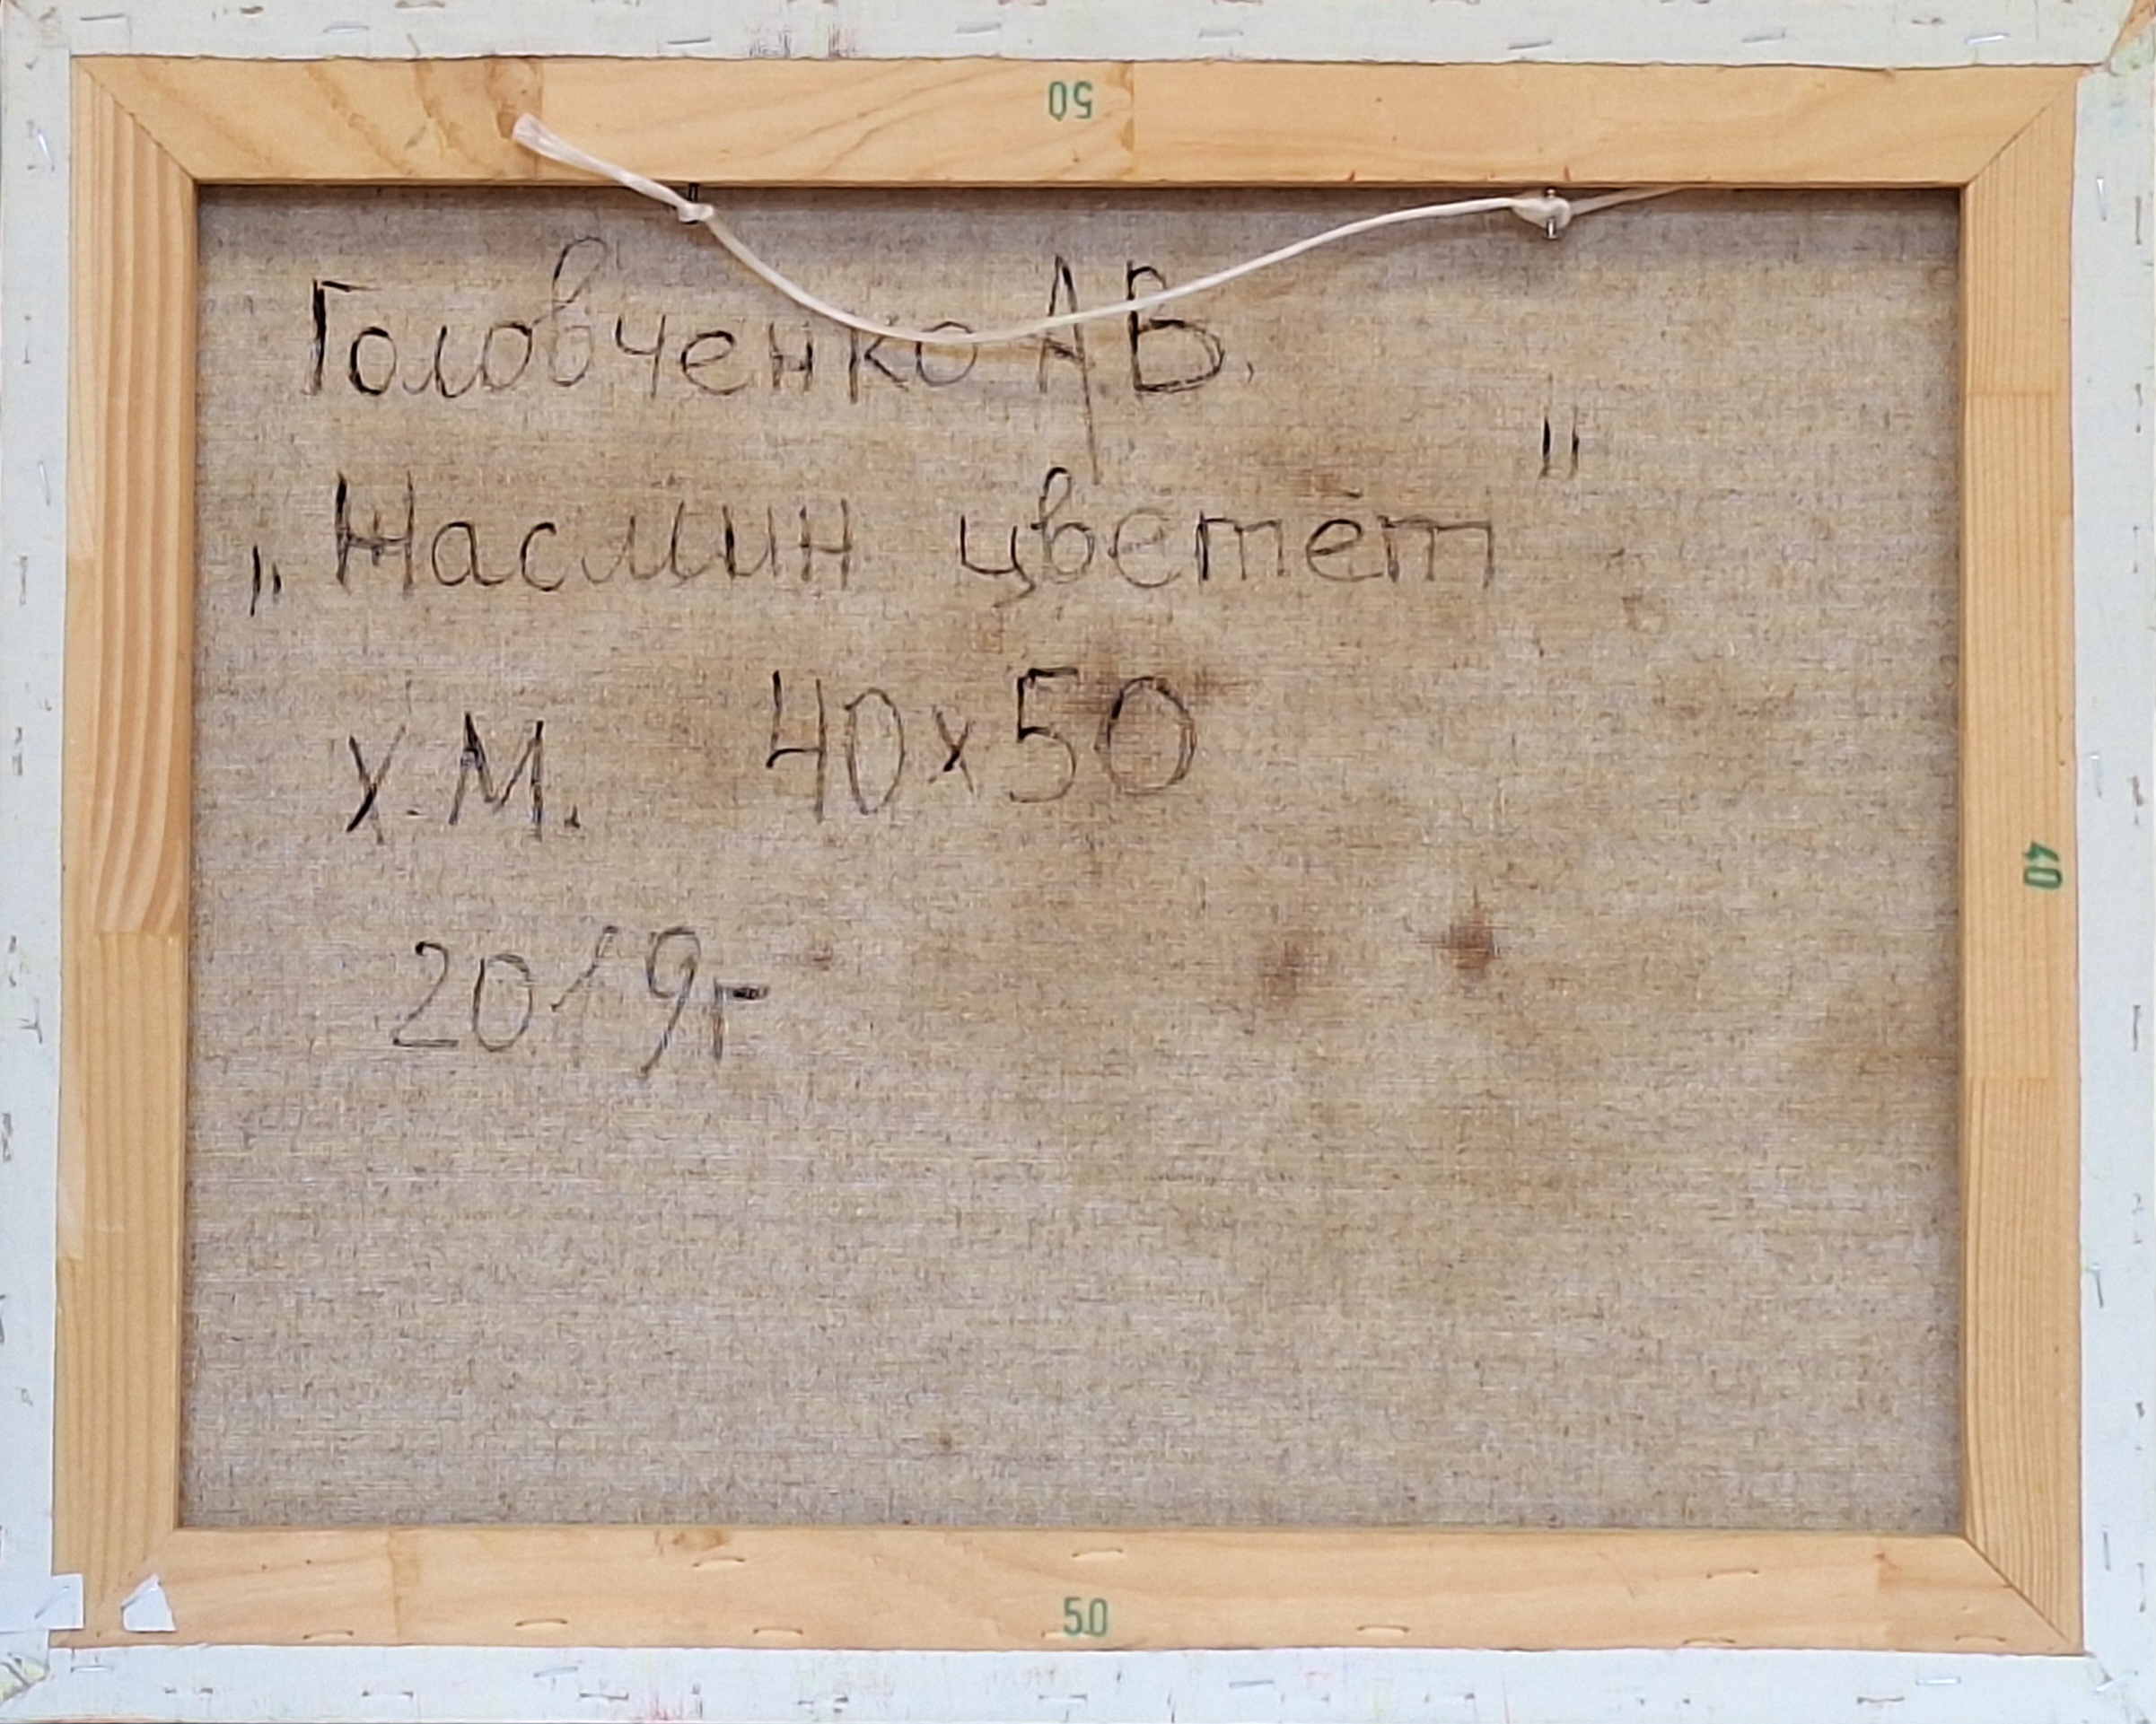 50
Головченко А.В.
„Жасмин цветёт"
х.м. 40х50
40
2019г
50